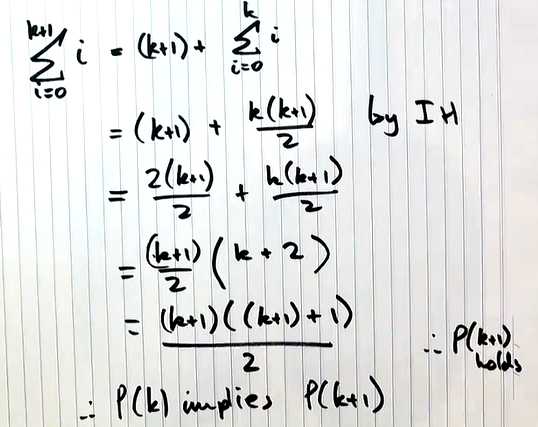 \sum_{i=0}^{k+1} i = (k+1) + \sum_{i=0}^{k} i
= (k+1) + \frac{k(k+1)}{2} by IH
= \frac{2(k+1)}{2} + \frac{k(k+1)}{2}
= \frac{(k+1)}{2} (k+2)
= \frac{(k+1)((k+1)+1)}{2}
∴ P(k+1) holds
∴ P(k) implies P(k+1)